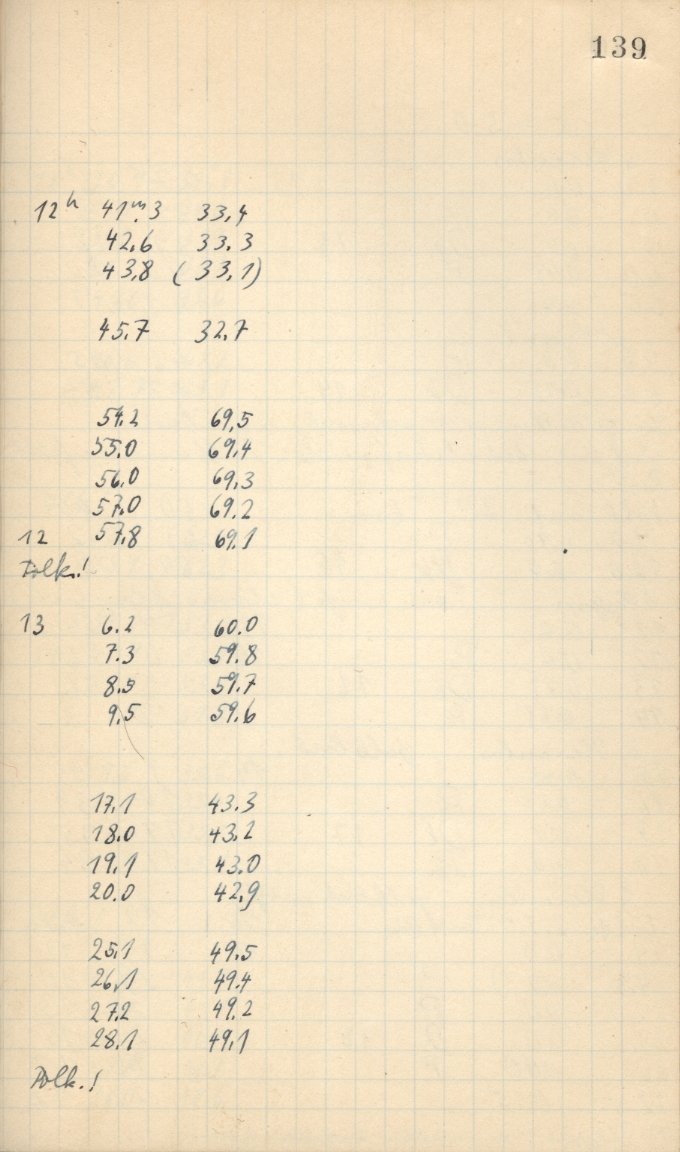 139
12h 41m.3 33,4
42,6 33.3
43,8 (33,1)
45.7 32,7
54.2 69,5
55.0 69,4
56,0 69,3
57,0 69,2
12 57,8 69.1
Wolk.!
13 6.2 60.0
7.3 59.8
8.5 59.7
9,5 59.6
17,1 43.3
18.0 43,2
19,1 43.0
20.0 42,9
25,1 49,5
26,1 49.4
27,2 49,2
28,1 49,1
Wolk.!